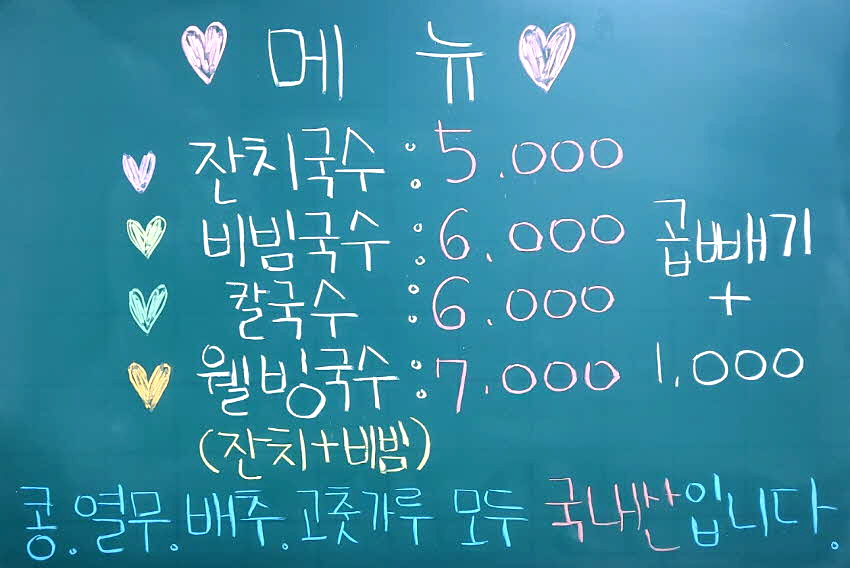 메뉴
잔치국수 : 5.000
비빔국수 : 6.000
칼국수 : 6.000
웰빙국수 : 7.000
(잔치+비빔)
곱빼기
+
1.000
콩.열무.배추.고춧가루 모두 국내산입니다.